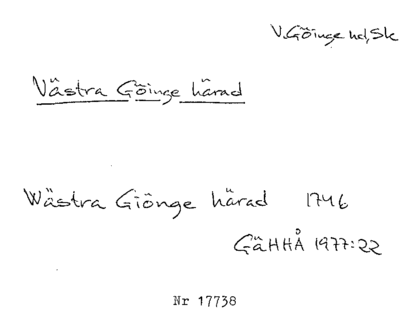 V.Göinge hd, Sk
Västra Göinge härad
Wästra Giönge härad 1746
GäHHÅ 1977:22
Nr 17738